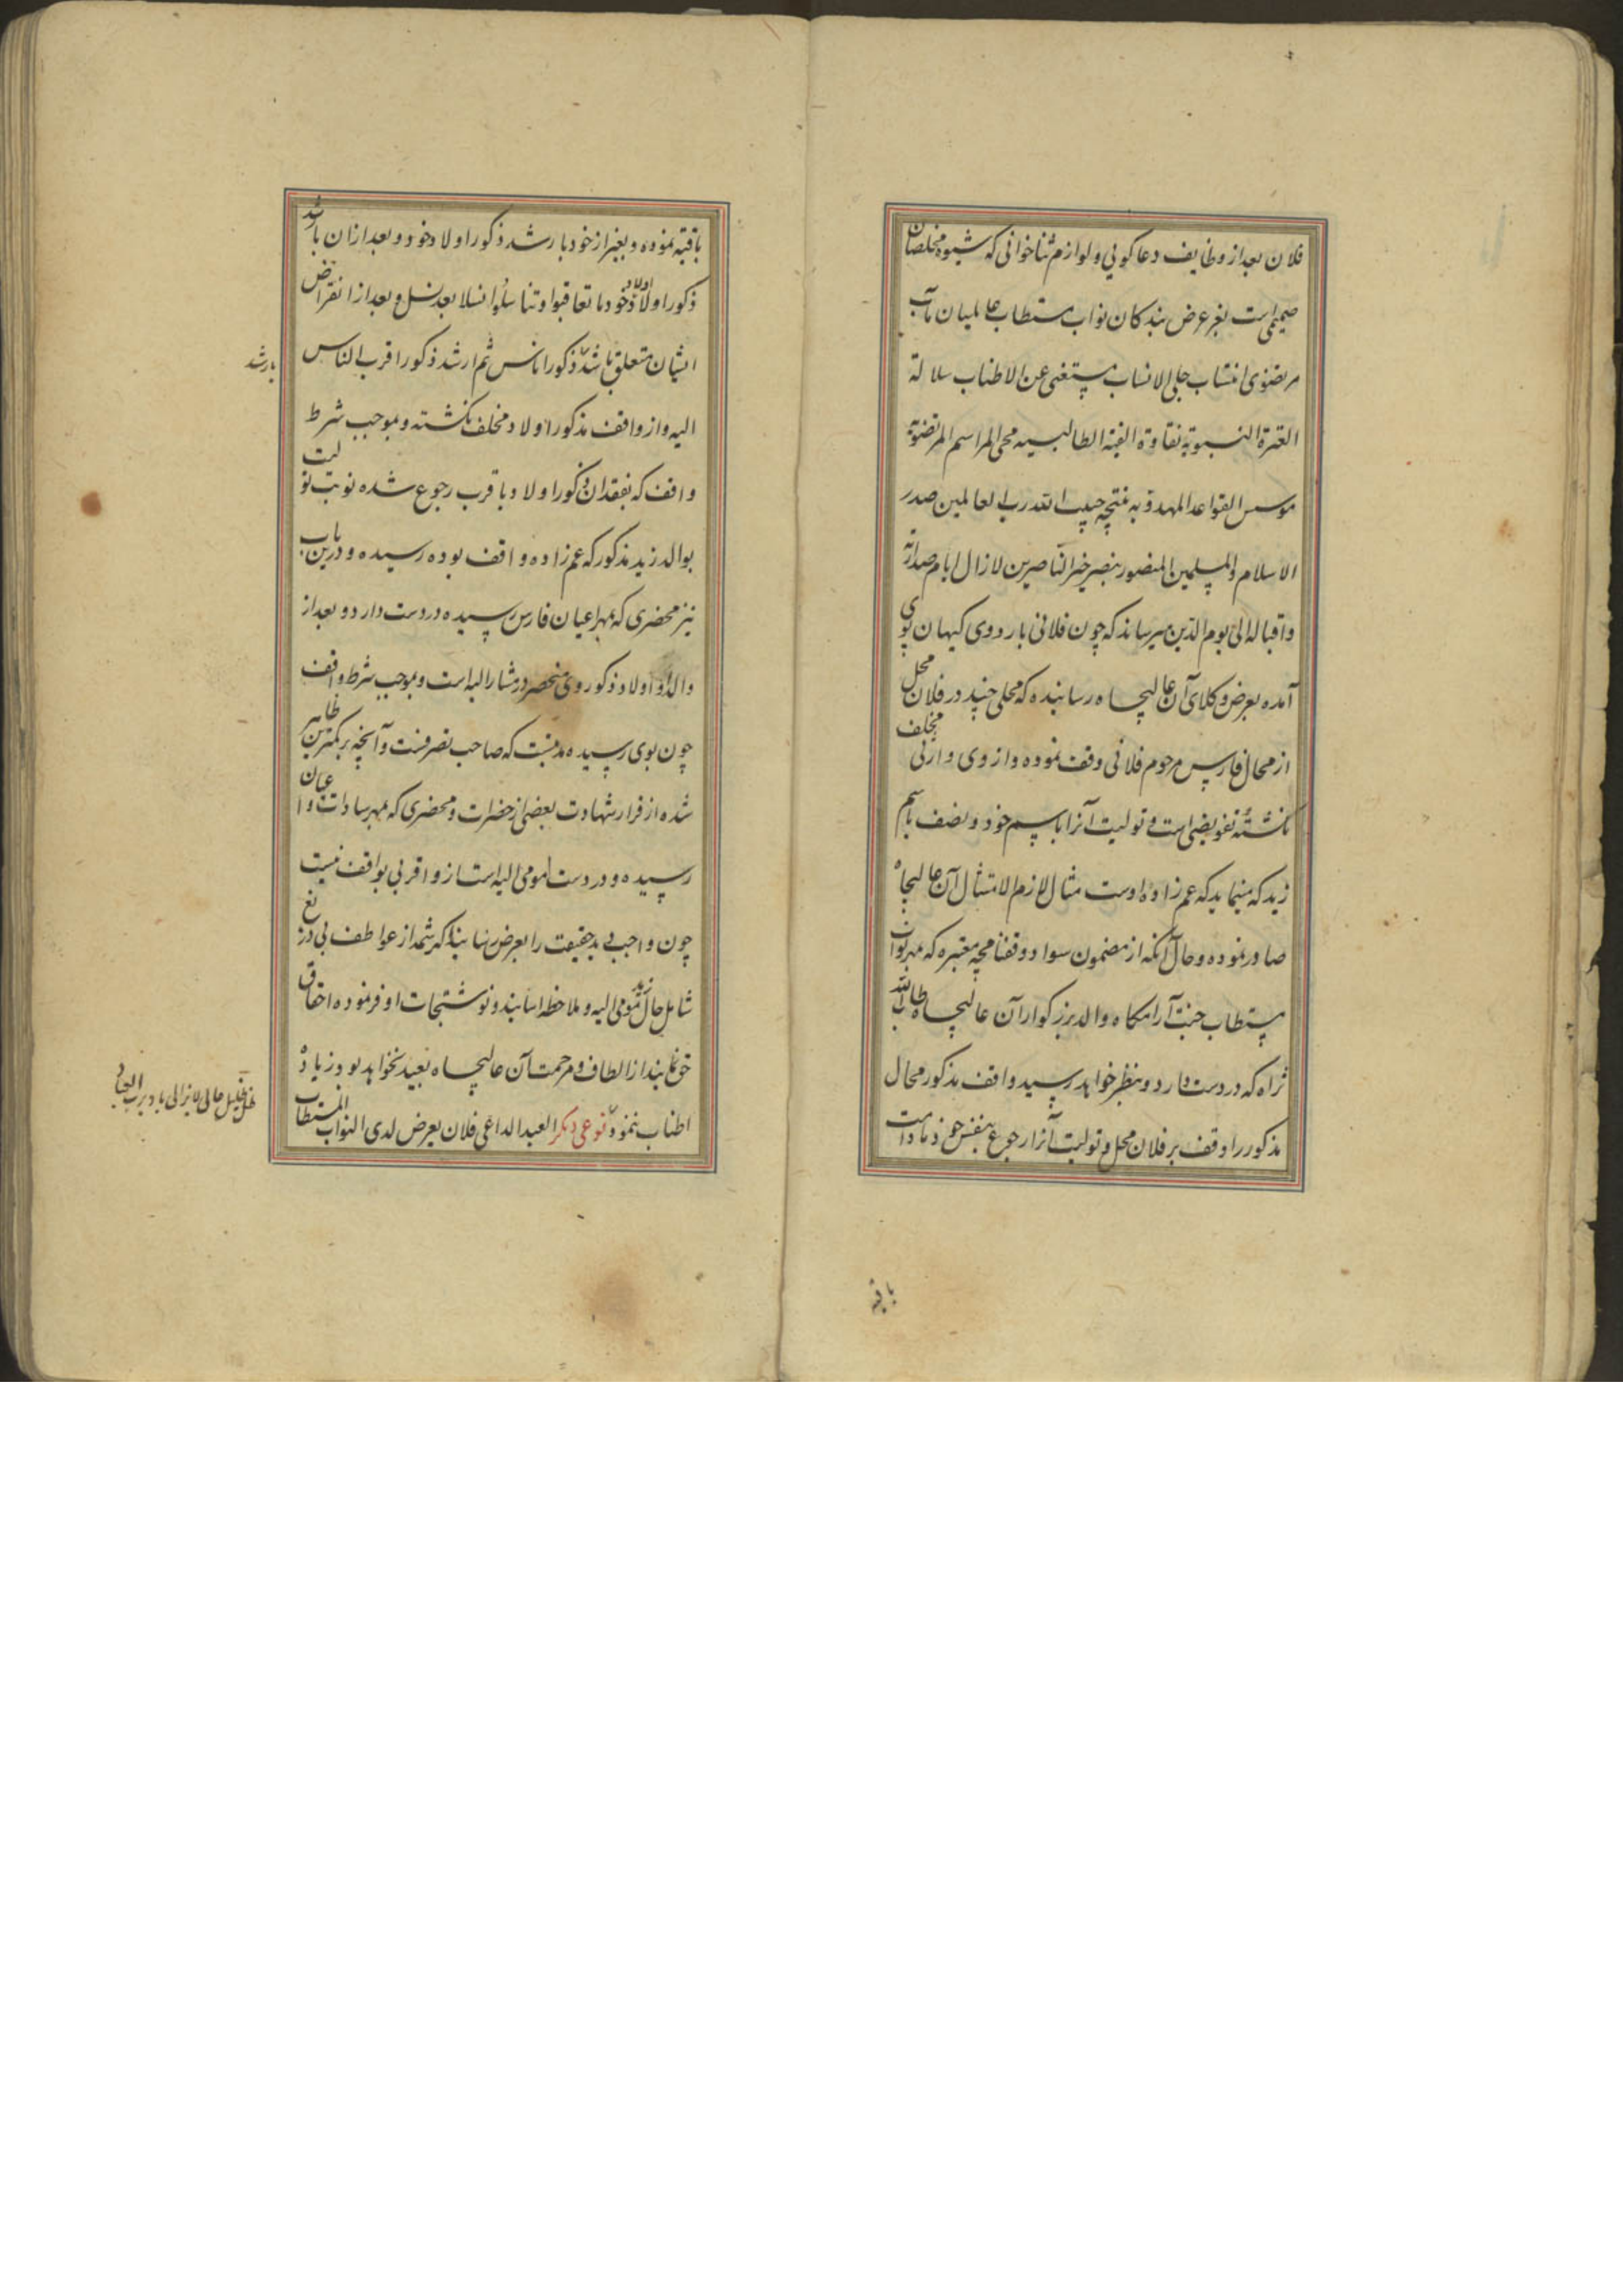 فلان بعد از وظایف دعا کوئی و لوازم ثنا خوانی که شیوه مخلصان
صمیمی است بغرعرض بندکان نواب مستطاب عالمیان مآب
مرتضوی انتساب جلی الانساب مستغنی عن الاطناب سلالة
العترة النبویه نقاوة الطالبیه محی المراسم المرتضویة
موسس القواعد المهدویه نتیجه حبیب الله رب العالمین صدر
الاسلام والمسلمین المنصور بنصر خیر الناصرین لازال ایام صدارته
و اقباله الی یوم الدین میرساند که چون فلانی باردوی کیهان پوی
آمده بعرض وکلای آن عالیجاه رسانیده که محلی چند در فلان محل
از محال فارس مرحوم فلانی وقف نموده و از وی وارثی مخلف
نکشته تفویضی است و تولیت آنرا باسم خود و نصف باسم
زید که مینماید که عم زاده اوست مثال لازم الامتثال آن عالیجاه
صادر نموده و حال آنکه از مضمون سواد وقفنامچه معتبره که بمهر نواب
مستطاب جنت آرامکاه والد بزرکوار آن عالیجاه طاب الله
ثراه که در دست دارد و بنظر خواهد رسید واقف مذکور محال
مذکور را وقف بر فلان محل و تولیت آنرا رجوع بنفس خود مادامت
باقیه
باقیه نموده و بغیر از خود بارشد ذکور اولاد خود و بعد از ان بارشد
ذکور اولاد اولاد خود ما تعاقبوا و تناسلوا نسلا بعد نسل و بعد از انقراض
ایشان متعلق بارشد ذکور اناس ثم ارشد ذکور اقرب الناس
بارشد
الیه و از واقف مذکور اولاد مخلف نکشته و بموجب شرط
واقف که بفقدان ذکور اولاد باقرب رجوع شده نوبت تولیت
بوالد زید مذکور که عم زاده واقف بوده رسیده و درین باب
نیز محضری که بمهر اعیان فارس رسیده در دست دارد و بعد از
والد او اولاد ذکور وی منحصر در مشار الیه است و بموجب شرط واقف
چون بوی رسیده مدتیست که صاحب تصرفست و آنچه بر کمترین ظاهر
شده از قرار شهادت بعضی از حضرات و محضری که بمهر سادات و اعیان
رسیده و در دست مومی الیه است از و اقربی بواقف نیست
چون واجب بد حقیقت را بعرض رسانید که رشحه از عواطف بی دریغ
شامل حال زید مومی الیه و ملاحظه اسانید و نوشتجات او فرموده احقاق
حق نمایند از الطاف و مرحمت آن عالیجاه بعید نخواهد بود زیاده
اطناب ننمود نوعی دیکر العبد الداعی فلان بعرض لدی النواب المستطاب
ظل ظلیل عالی لایزالی باد برب العباد